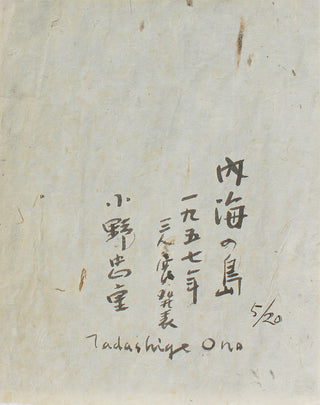 内海の島
一九五七年
三人展発表
小野忠重
5/20
Tadashige Ono